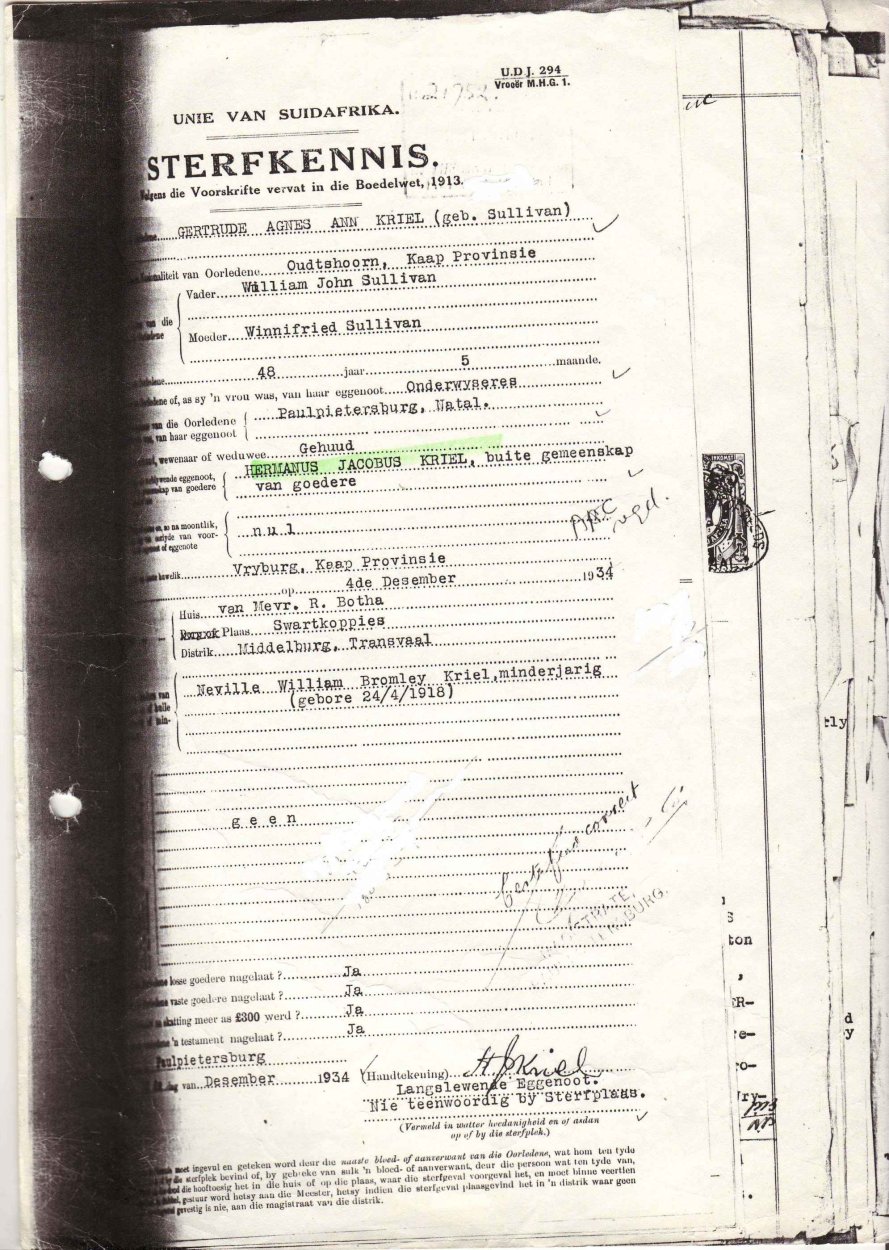 U.D J. 294
Vroeër M.H.G. 1.
UNIE VAN SUIDAFRIKA.
STERFKENNIS.
Volgens die Voorskrifte vervat in die Boedelwet, 1913.
GERTRUDE AGNES ANN KRIEL (geb. Sullivan)
van Oorledene Oudtshoorn, Kaap Provinsie
Vader William John Sullivan
van die
Moeder Winnifried Sullivan
48 jaar 5 maande.
of, as sy 'n vrou was, van haar eggenoot Onderwyseres
van die Oorledene Paulpietersburg, Natal.
van haar eggenoot
wewenaar of weduwee Gehuud
eggenoot, HERMANUS JACOBUS KRIEL, buite gemeenskap
van goedere van goedere
so na moontlik,
van voor- nul
of eggenote
huwelik Vryburg, Kaap Provinsie
op 4de Desember 1934
Huis van Mevr. R. Botha
Plaas Swartkoppies
Distrik Middelburg, Transvaal
Neville William Bromley Kriel, minderjarig
(gebore 24/4/1918)
geen
Certified correct
MAGISTRATE,
losse goedere nagelaat ? Ja
vaste goedere nagelaat ? Ja
skatting meer as £300 werd ? Ja
'n testament nagelaat ? Ja
Paulpietersburg
dag van Desember 1934 (Handtekening) H J Kriel
Langslewende Eggenoot.
Nie teenwoordig by Sterfplaas.
(Vermeld in watter hoedanigheid en of asdan
op of by die sterfplek.)
moet ingevul en geteken word deur die naaste bloed- of aanverwant van die Oorledene, wat hom ten tyde
die sterfplek bevind of, by gebreke van sulk 'n bloed- of aanverwant, deur die persoon wat ten tyde van,
die hooftoesig het in die huis of op die plaas, waar die sterfgeval voorgeval het, en moet binne veertien
gestuur word hetsy aan die Meester, hetsy indien die sterfgeval plaasgevind het in 'n distrik waar geen
gevestig is nie, aan die magistraat van die distrik.
tly
ton
ER-
re-
ro-
ry-
d
y